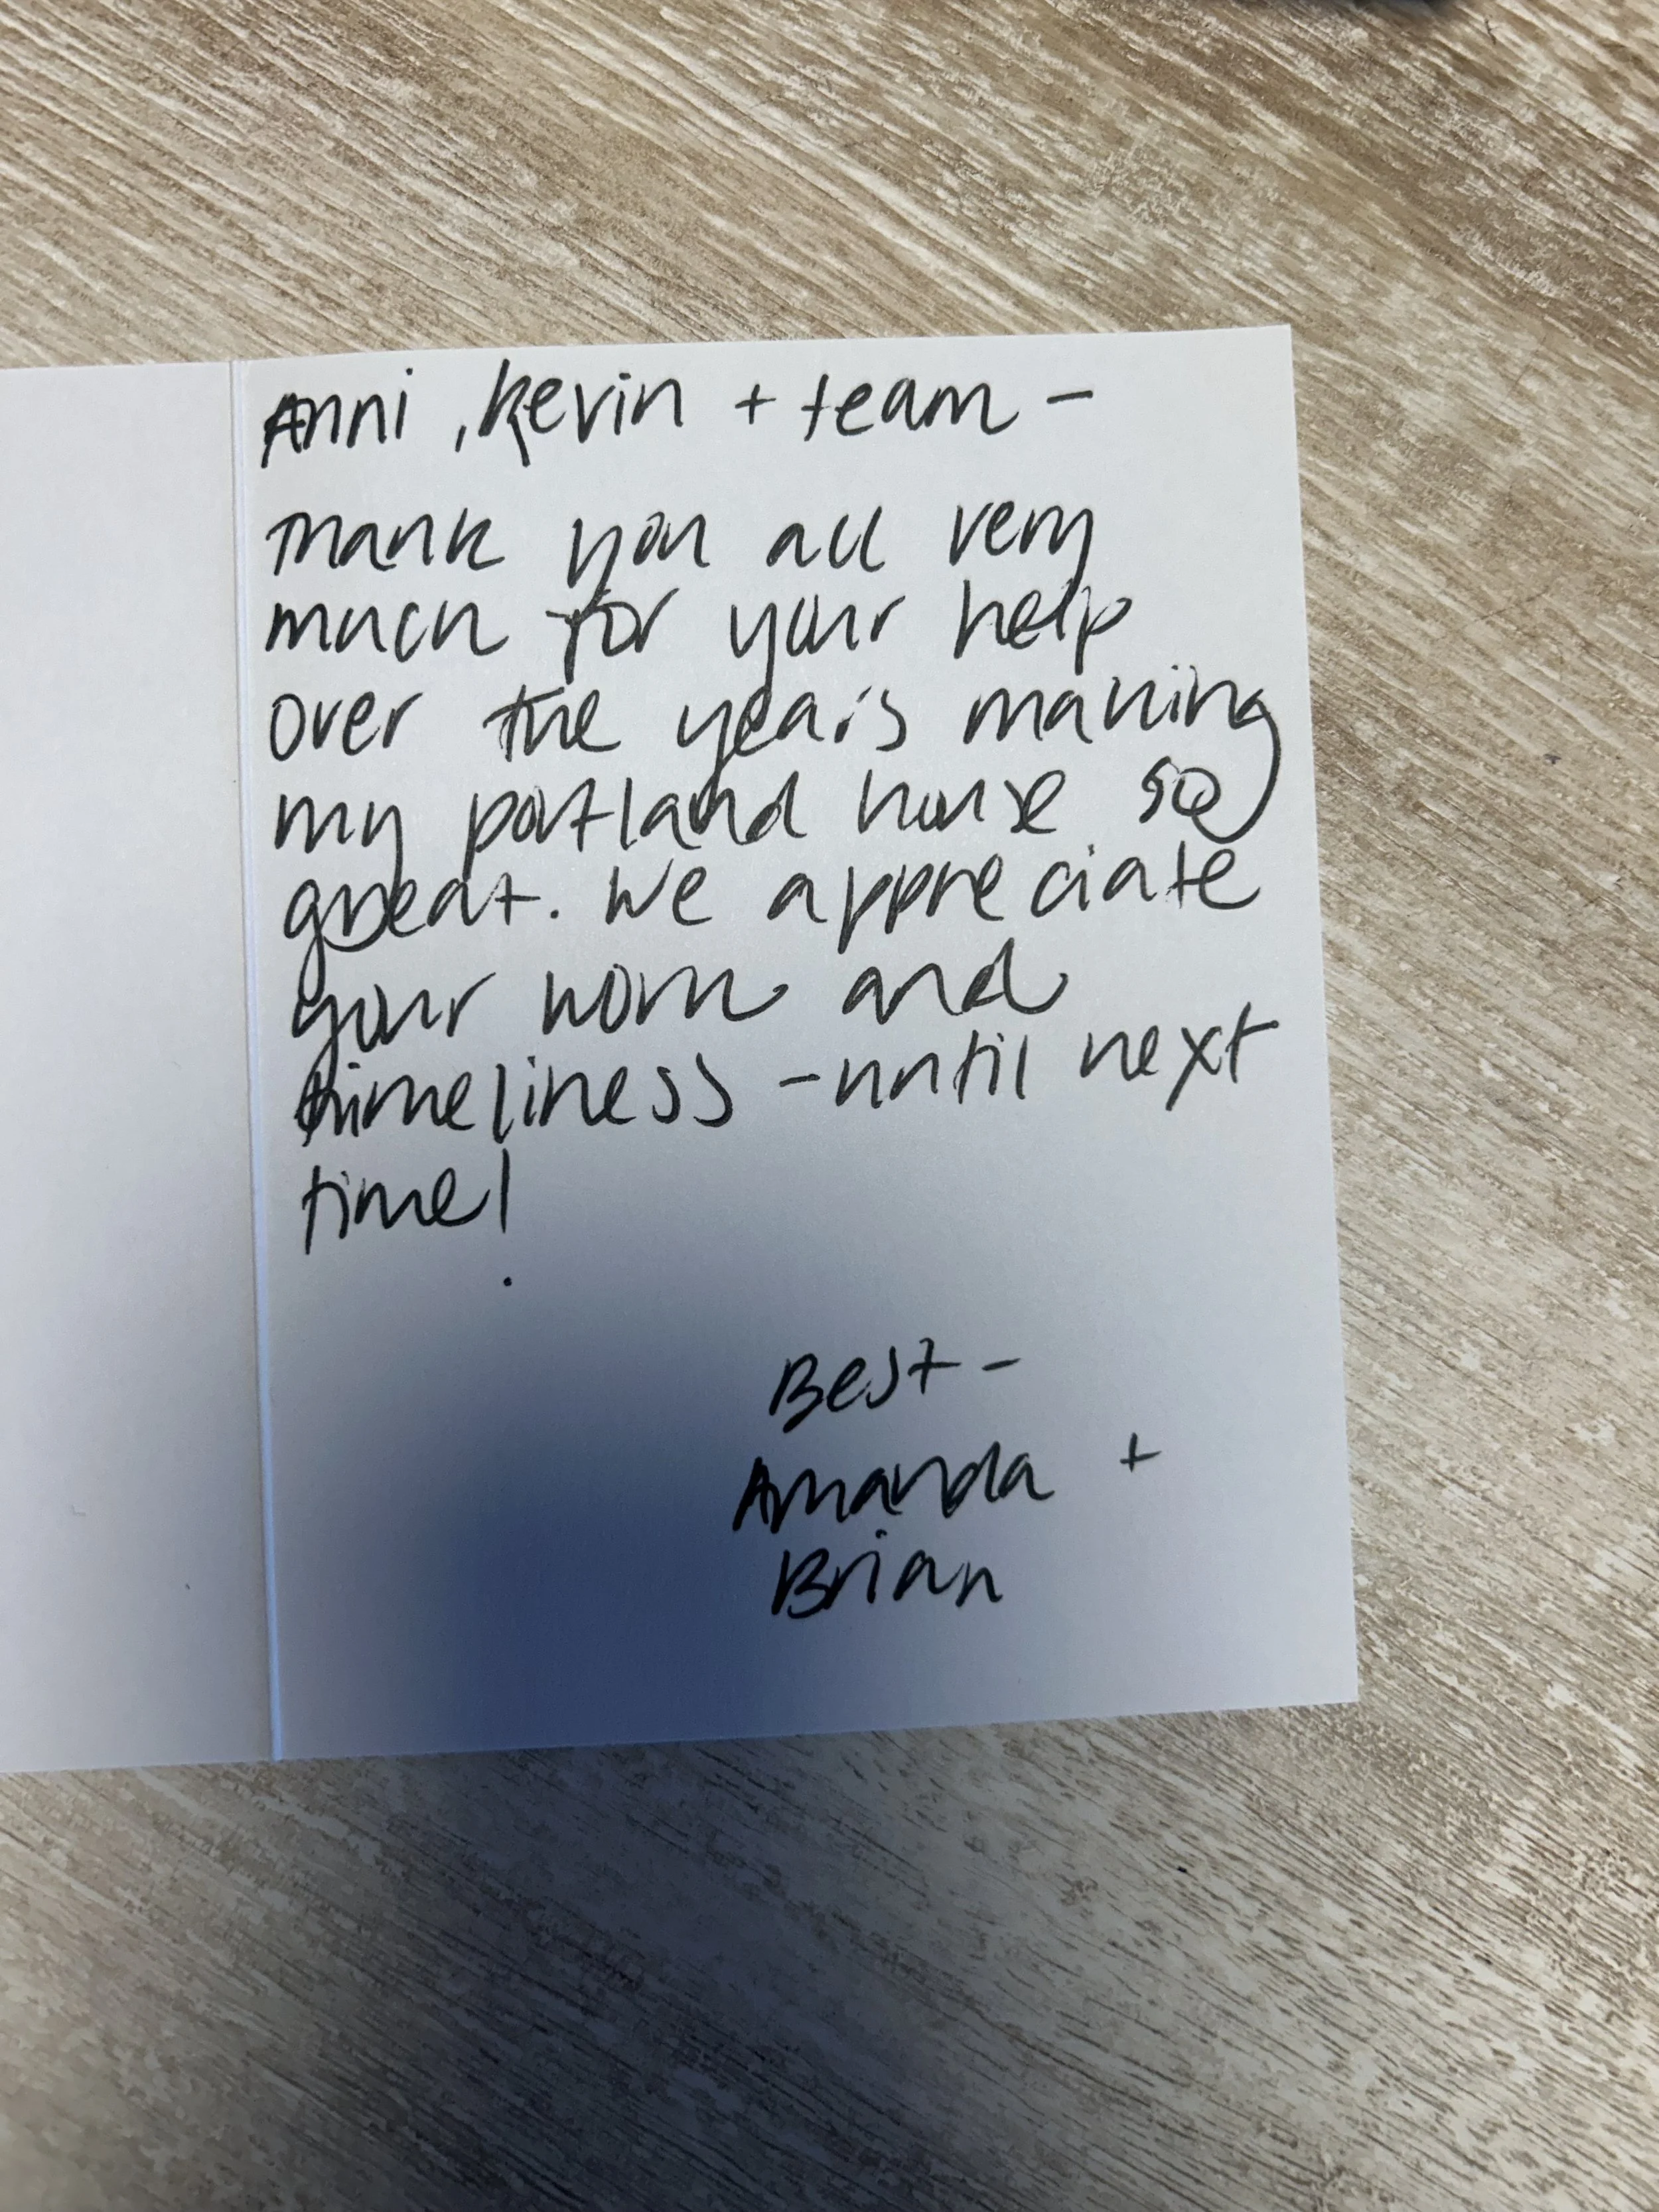 Anni, Kevin + team -
Thank you all very
much for your help
over the years making
my portland house so
great. We appreciate
your work and
timeliness - until next
time!
Best -
Amanda +
Brian